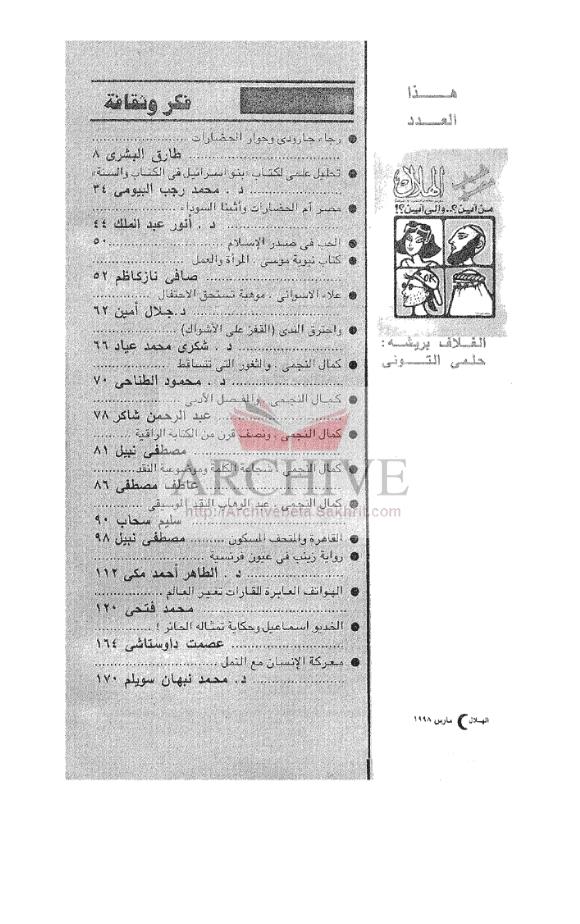 هـــذا
العـدد
الهلال
من أين؟..والى أين؟!
الغـلاف بريشـه :
حلمـى التـونـى
الهلال مارس ١٩٩٨
فكر وثقافة
● رجاء جارودى وحوار الحضارات ........................
........................ طارق البشرى ٨
● تحليل علمى لكتاب «بنو اسرائيل فى الكتاب والسنة»
........................ د . محمد رجب البيومى ٣٤
● مصر أم الحضارات وأثينا السوداء ........................
........................ د . أنور عبد الملك ٤٤
● الحب فى صدر الإسلام ........................ ٥٠
● كتاب نبوية موسى . المرأة والعمل ........................
........................ صافى نازكاظم ٥٢
● علاء الاسوانى . موهبة تستحق الاحتفال ........................
........................ د.جلال أمين ٦٢
● واحترق الندى (القفز على الأشواك) ........................
........................ د . شكرى محمد عياد ٦٦
● كمال النجمى . والثغور التى تتساقط ........................
........................ د . محمود الطناحى ٧٠
● كمـال النجـمى . والمفصل الأدبى ........................
........................ عبد الرحمن شاكر ٧٨
● كمال النجمى . ونصف قرن من الكتابة الراقية ........................
........................ مصطفى نبيل ٨١
● كمال النجمى . شجاعة الكلمة وموضوعية النقد ........................
........................ عاطف مصطفى ٨٦
● كمال النجمى . عبد الوهاب النقد الموسيقى ........................
........................ سليم سحاب ٩٠
● القاهرة والمتحف المسكون ........................ مصطفى نبيل ٩٨
● رواية زينب فى عيون فرنسية ........................
........................ د . الطاهر أحمد مكى ١١٢
● الهواتف العابرة للقارات تغير العالم ........................
........................ محمد فتحى ١٢٠
● الخديو اسماعيل وحكاية تمثاله الحائر ! ........................
........................ عصمت داوستاشى ١٦٤
● معركة الإنسان مع النمل ........................
........................ د. محمد نبهان سويلم ١٧٠
ARCHIVE
http://Archivebeta.Sakhrit.com